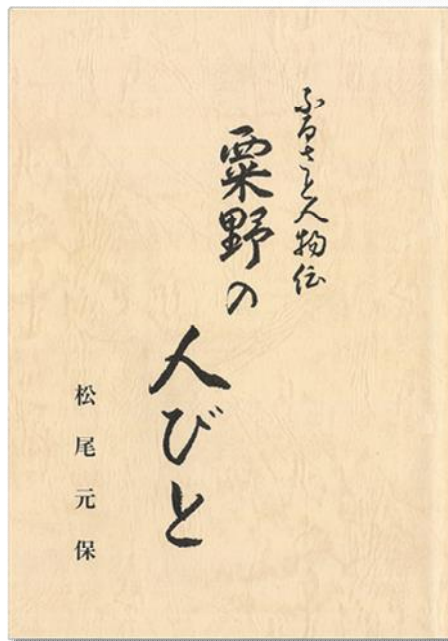 ふるさと人物伝
粟野の
人びと
松尾元保